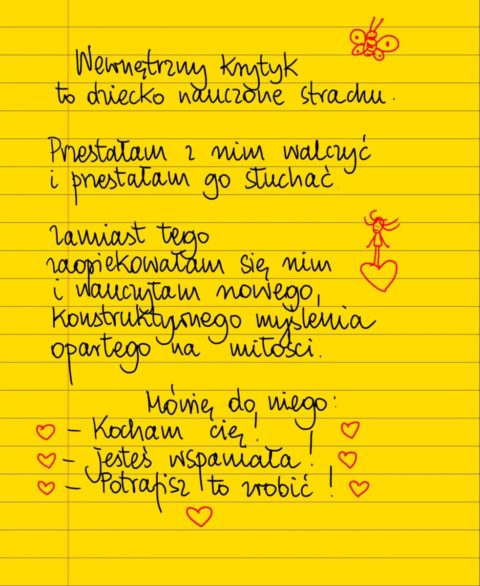 Wewnętrzny krytyk
to dziecko nauczone strachu.
Przestałam z nim walczyć
i przestałam go słuchać.
Zamiast tego
zaopiekowałam się nim
i nauczyłam nowego,
konstruktywnego myślenia
opartego na miłości.
Mówię do niego:
- Kocham cię!
- Jesteś wspaniała!
- Potrafisz to zrobić!